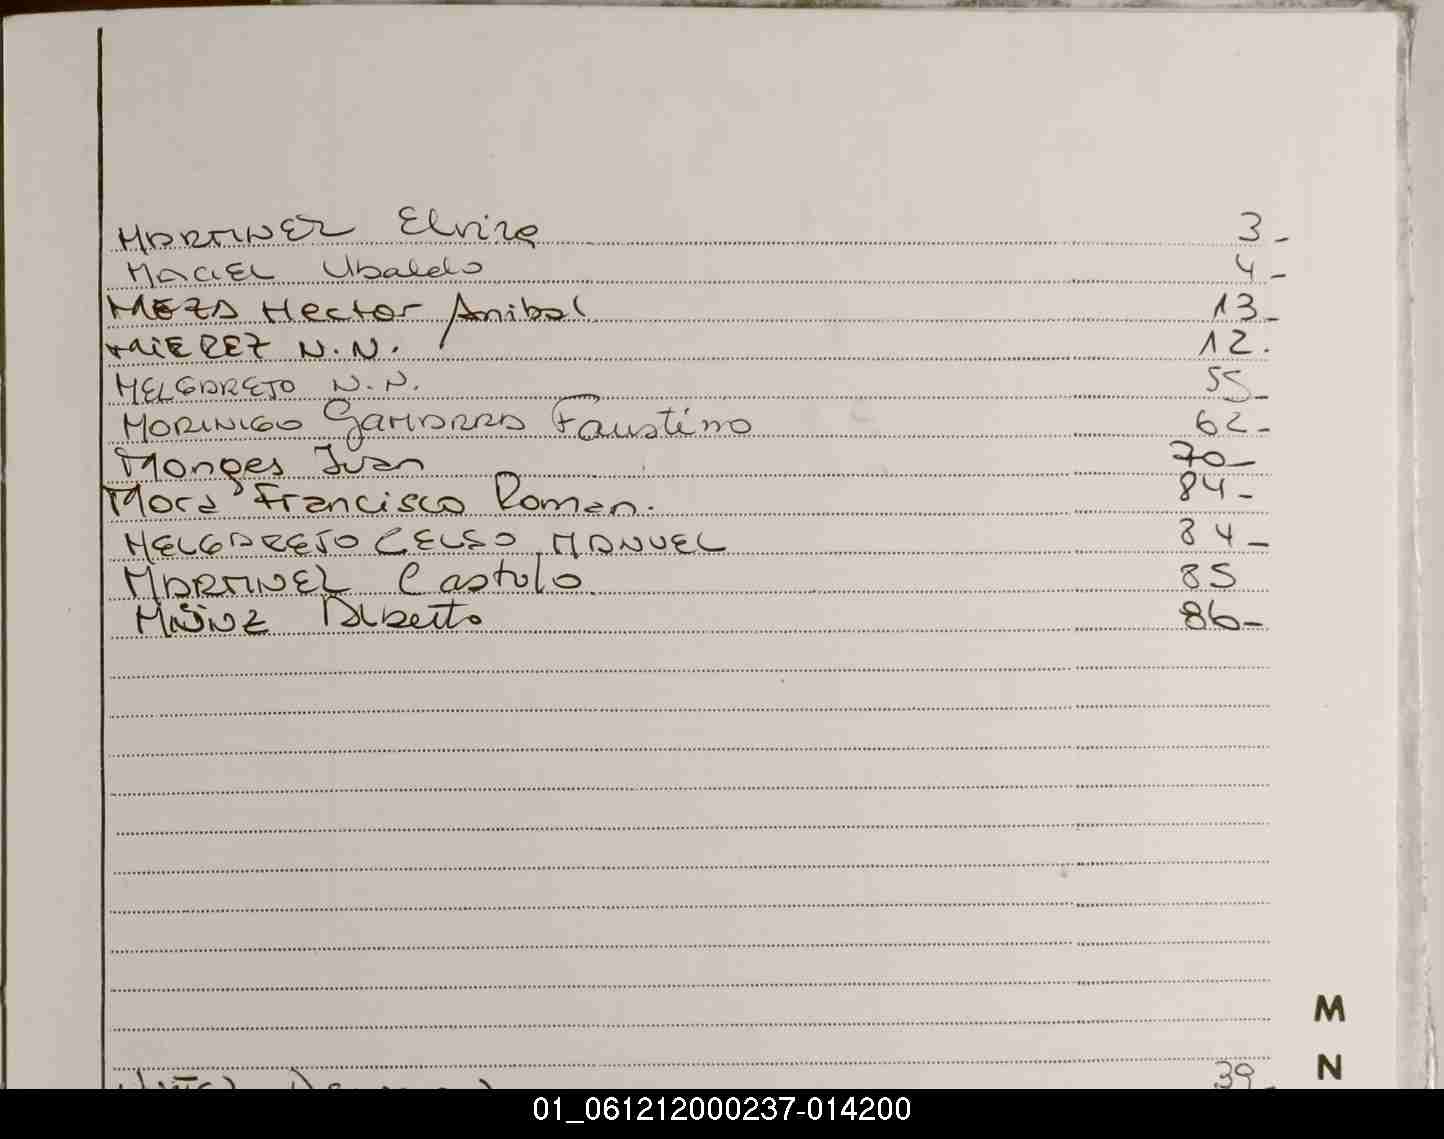 MARTINEZ Elvira 3-
MACIEL Ubaldo 4-
MEZA Hector Anibal 13-
MIEREZ N.N. 12.
MELGAREJO N.N. 55-
MORINIGO GAMARRA Faustino 62-
Monges Juan 70-
Mora Francisco Roman. 84-
MELGAREJO CELSO MANUEL 84-
MARTINEZ Castulo 85
MUÑOZ Alberto 86-
M
N
39-
01_061212000237-014200